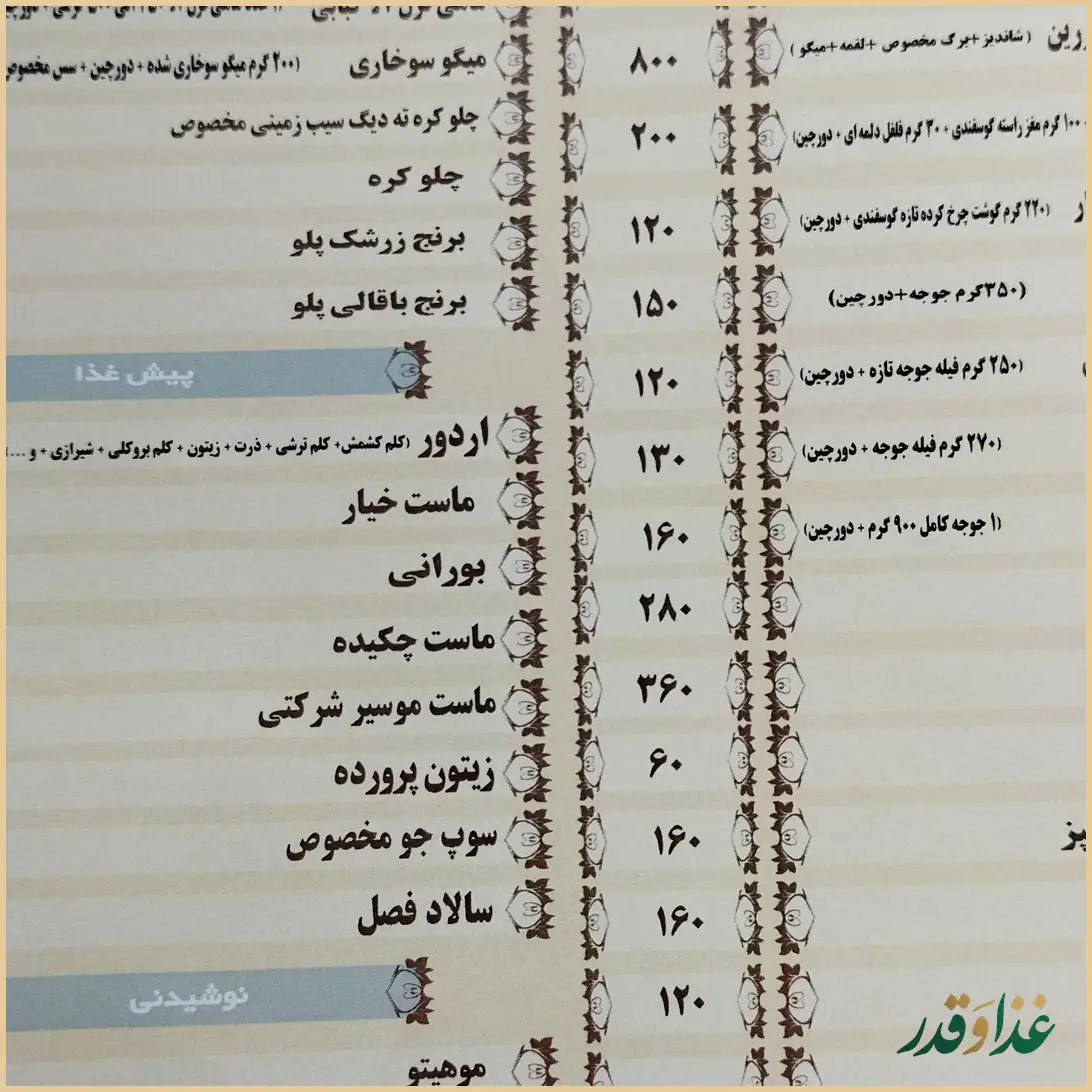 زرین ( شاندیز+برگ مخصوص +لقمه+میگو )
۱۰۰ گرم مغز راسته گوسفندی + ۳۰ گرم فلفل دلمه ای + دورچین)
(۲۲۰ گرم گوشت چرخ کرده تازه گوسفندی + دورچین)
(۳۵۰گرم جوجه+دورچین)
(۲۵۰ گرم فیله جوجه تازه + دورچین)
(۲۷۰ گرم فیله جوجه + دورچین)
(۱ جوجه کامل ۹۰۰ گرم + دورچین)
۸۰۰
۲۰۰
۱۲۰
۱۵۰
۱۲۰
۱۳۰
۱۶۰
۲۸۰
۳۶۰
۶۰
۱۶۰
۱۶۰
۱۲۰
میگو سوخاری (۲۰۰ گرم میگو سوخاری شده + دورچین + سس مخصوص
چلو کره ته دیگ سیب زمینی مخصوص
چلو کره
برنج زرشک پلو
برنج باقالی پلو
پیش غذا
اردور (کلم کشمش+ کلم ترشی + ذرت + زیتون + کلم بروکلی + شیرازی + و ...)
ماست خیار
بورانی
ماست چکیده
ماست موسیر شرکتی
زیتون پرورده
سوپ جو مخصوص
سالاد فصل
نوشیدنی
موهیتو
غذا و قدر